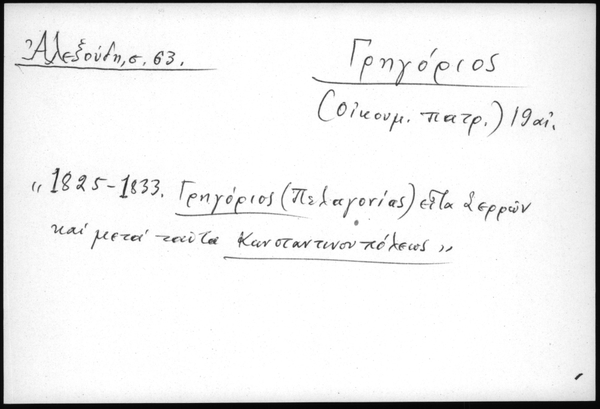 Ἀλεξούδη, σ. 63.
Γρηγόριος
(Οἰκουμ. πατρ.) 19 αἰ.
"1825-1833. Γρηγόριος (Πελαγονίας) εἶτα Σερρῶν
καί μετά ταῦτα Κωνσταντινουπόλεως"